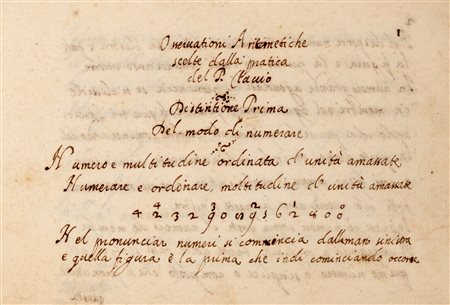 1
Osservationi Aritmetiche
scelte dalla pratica
del P. Clavio
Distintione Prima
Del modo di numerare
Numero e multitudine ordinata d'unità amassate
Numerare e ordinare, moltitudine d'unità amassate
Nel pronunciar numeri si comincia dalla man sinistra
e quella figura è la prima che indi cominciando occorre